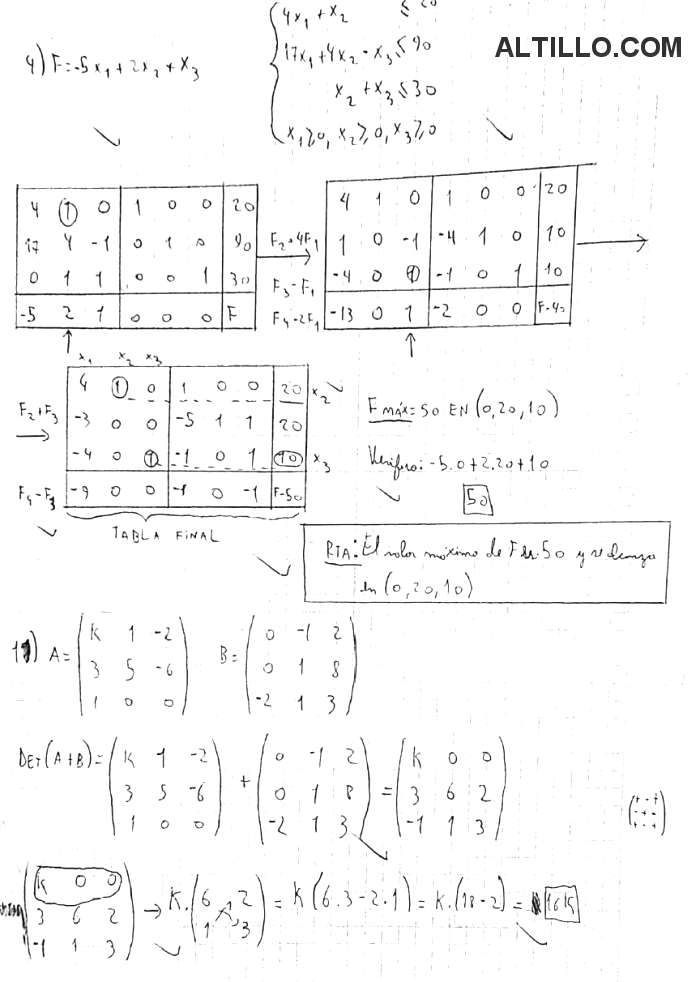 4x₁ + x₂ ≤ 20
ALTILLO.COM
4) F = -5x₁ + 2x₂ + x₃
17x₁ + 4x₂ - x₃ ≤ 90
x₂ + x₃ ≤ 30
x₁ ≥ 0, x₂ ≥ 0, x₃ ≥ 0
4 1 0 1 0 0 20
17 4 -1 0 1 0 90
0 1 1 0 0 1 30
-5 2 1 0 0 0 F
F₃ - F₁
F₄ - 2F₁
4 1 0 1 0 0 20
1 0 -1 -4 1 0 10
-4 0 1 -1 0 1 10
-13 0 1 -2 0 0 F-40
x₁ x₂ x₃
F₂ + F₃
4 1 0 1 0 0 20 x₂
-3 0 0 -5 1 1 20
-4 0 1 -1 0 1 10 x₃
-9 0 0 -1 0 -1 F-50
F₄ - F₃
TABLA FINAL
F MÁX = 50 EN (0,20,10)
Verifico: -5.0 + 2.20 + 10
50
RTA: El valor máximo de F es 50 y se alcanza
en (0,20,10)
A = K 1 -2 B = 0 -1 2
3 5 -6 0 1 8
1 0 0 -2 1 3
DET (A+B) = K 1 -2 + 0 -1 2 = K 0 0
3 5 -6 0 1 8 3 6 2
1 0 0 -2 1 3 -1 1 3
+ - +
- + -
+ - +
K 0 0
3 6 2
-1 1 3
→ K. 6 2 = K (6.3 - 2.1) = K. (18 - 2) = 16K
1 3